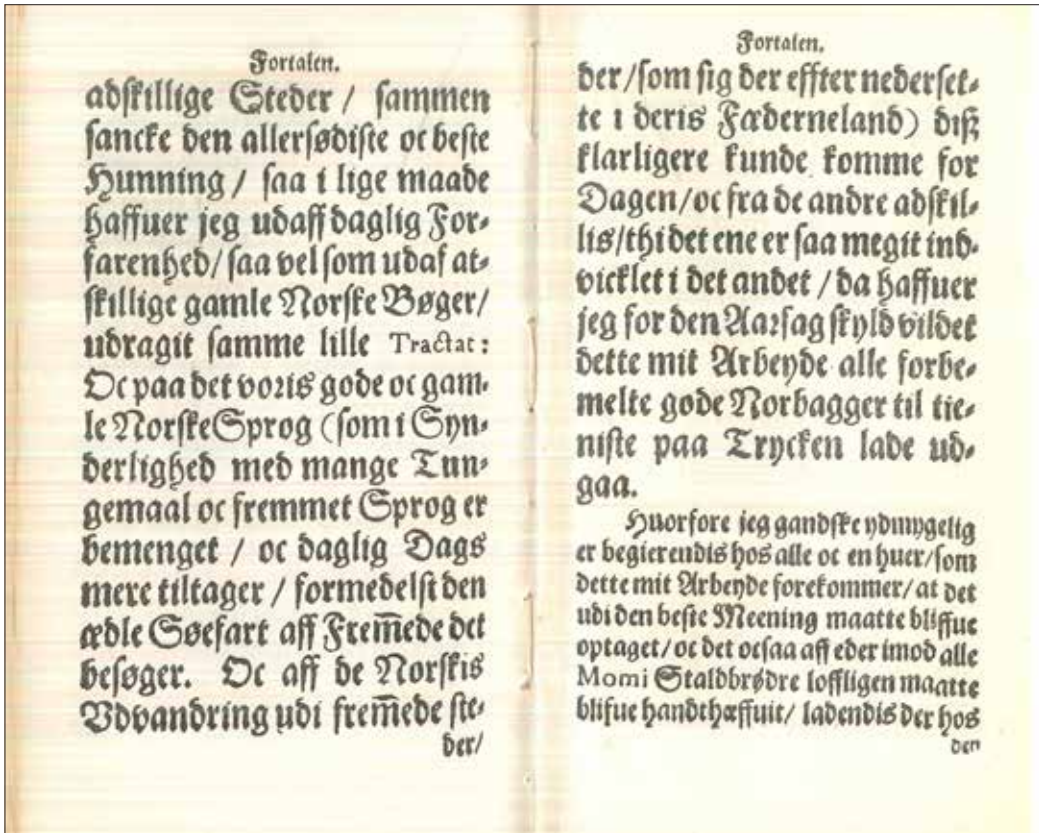 Fortalen.
adskillige Steder / sammen
sancke den allersødiste oc beste
Hunning / saa i lige maade
haffuer jeg udaff daglig For-
farenhed/ saa vel som udaf at-
skillige gamle Norske Bøger/
udragit samme lille Tractat:
Oc paa det voris gode oc gam-
le Norske Sprog (som i Syn-
derlighed med mange Tun-
gemaal oc fremmet Sprog er
bemenget / oc daglig Dags
mere tiltager / formedelst den
ædle Søefart aff Frem̄ede det
besøger. Oc aff de Norskis
Vdvandring udi frem̄ede ste-
der/
Fortalen.
der/som sig der effter nederset-
te i deris Fæderneland) diß
klarligere kunde komme for
Dagen/oc fra de andre adskil-
lis/thi det ene er saa megit ind-
vicklet i det andet / da haffuer
jeg for den Aarsag skyld vildet
dette mit Arbeyde alle forbe-
melte gode Norbagger til tie-
niste paa Trycken lade ud-
gaa.
Huorfore jeg gandske ydmygelig
er begierendis hos alle oc en huer/som
dette mit Arbeyde forekommer/ at det
udi den beste Meening maatte bliffue
optaget/oc det ocsaa aff eder imod alle
Momi Staldbrødre loffligen maatte
blifue handthæffuit/ ladendis der hos
den